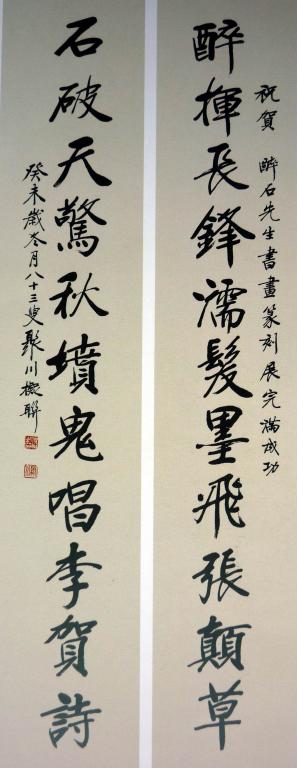 祝賀 醉石先生書畫篆刻展完滿成功
醉揮長鋒濡髮墨飛張顛草
石破天驚秋墳鬼唱李賀詩
癸未歲冬月八十三叟聚川撰聯